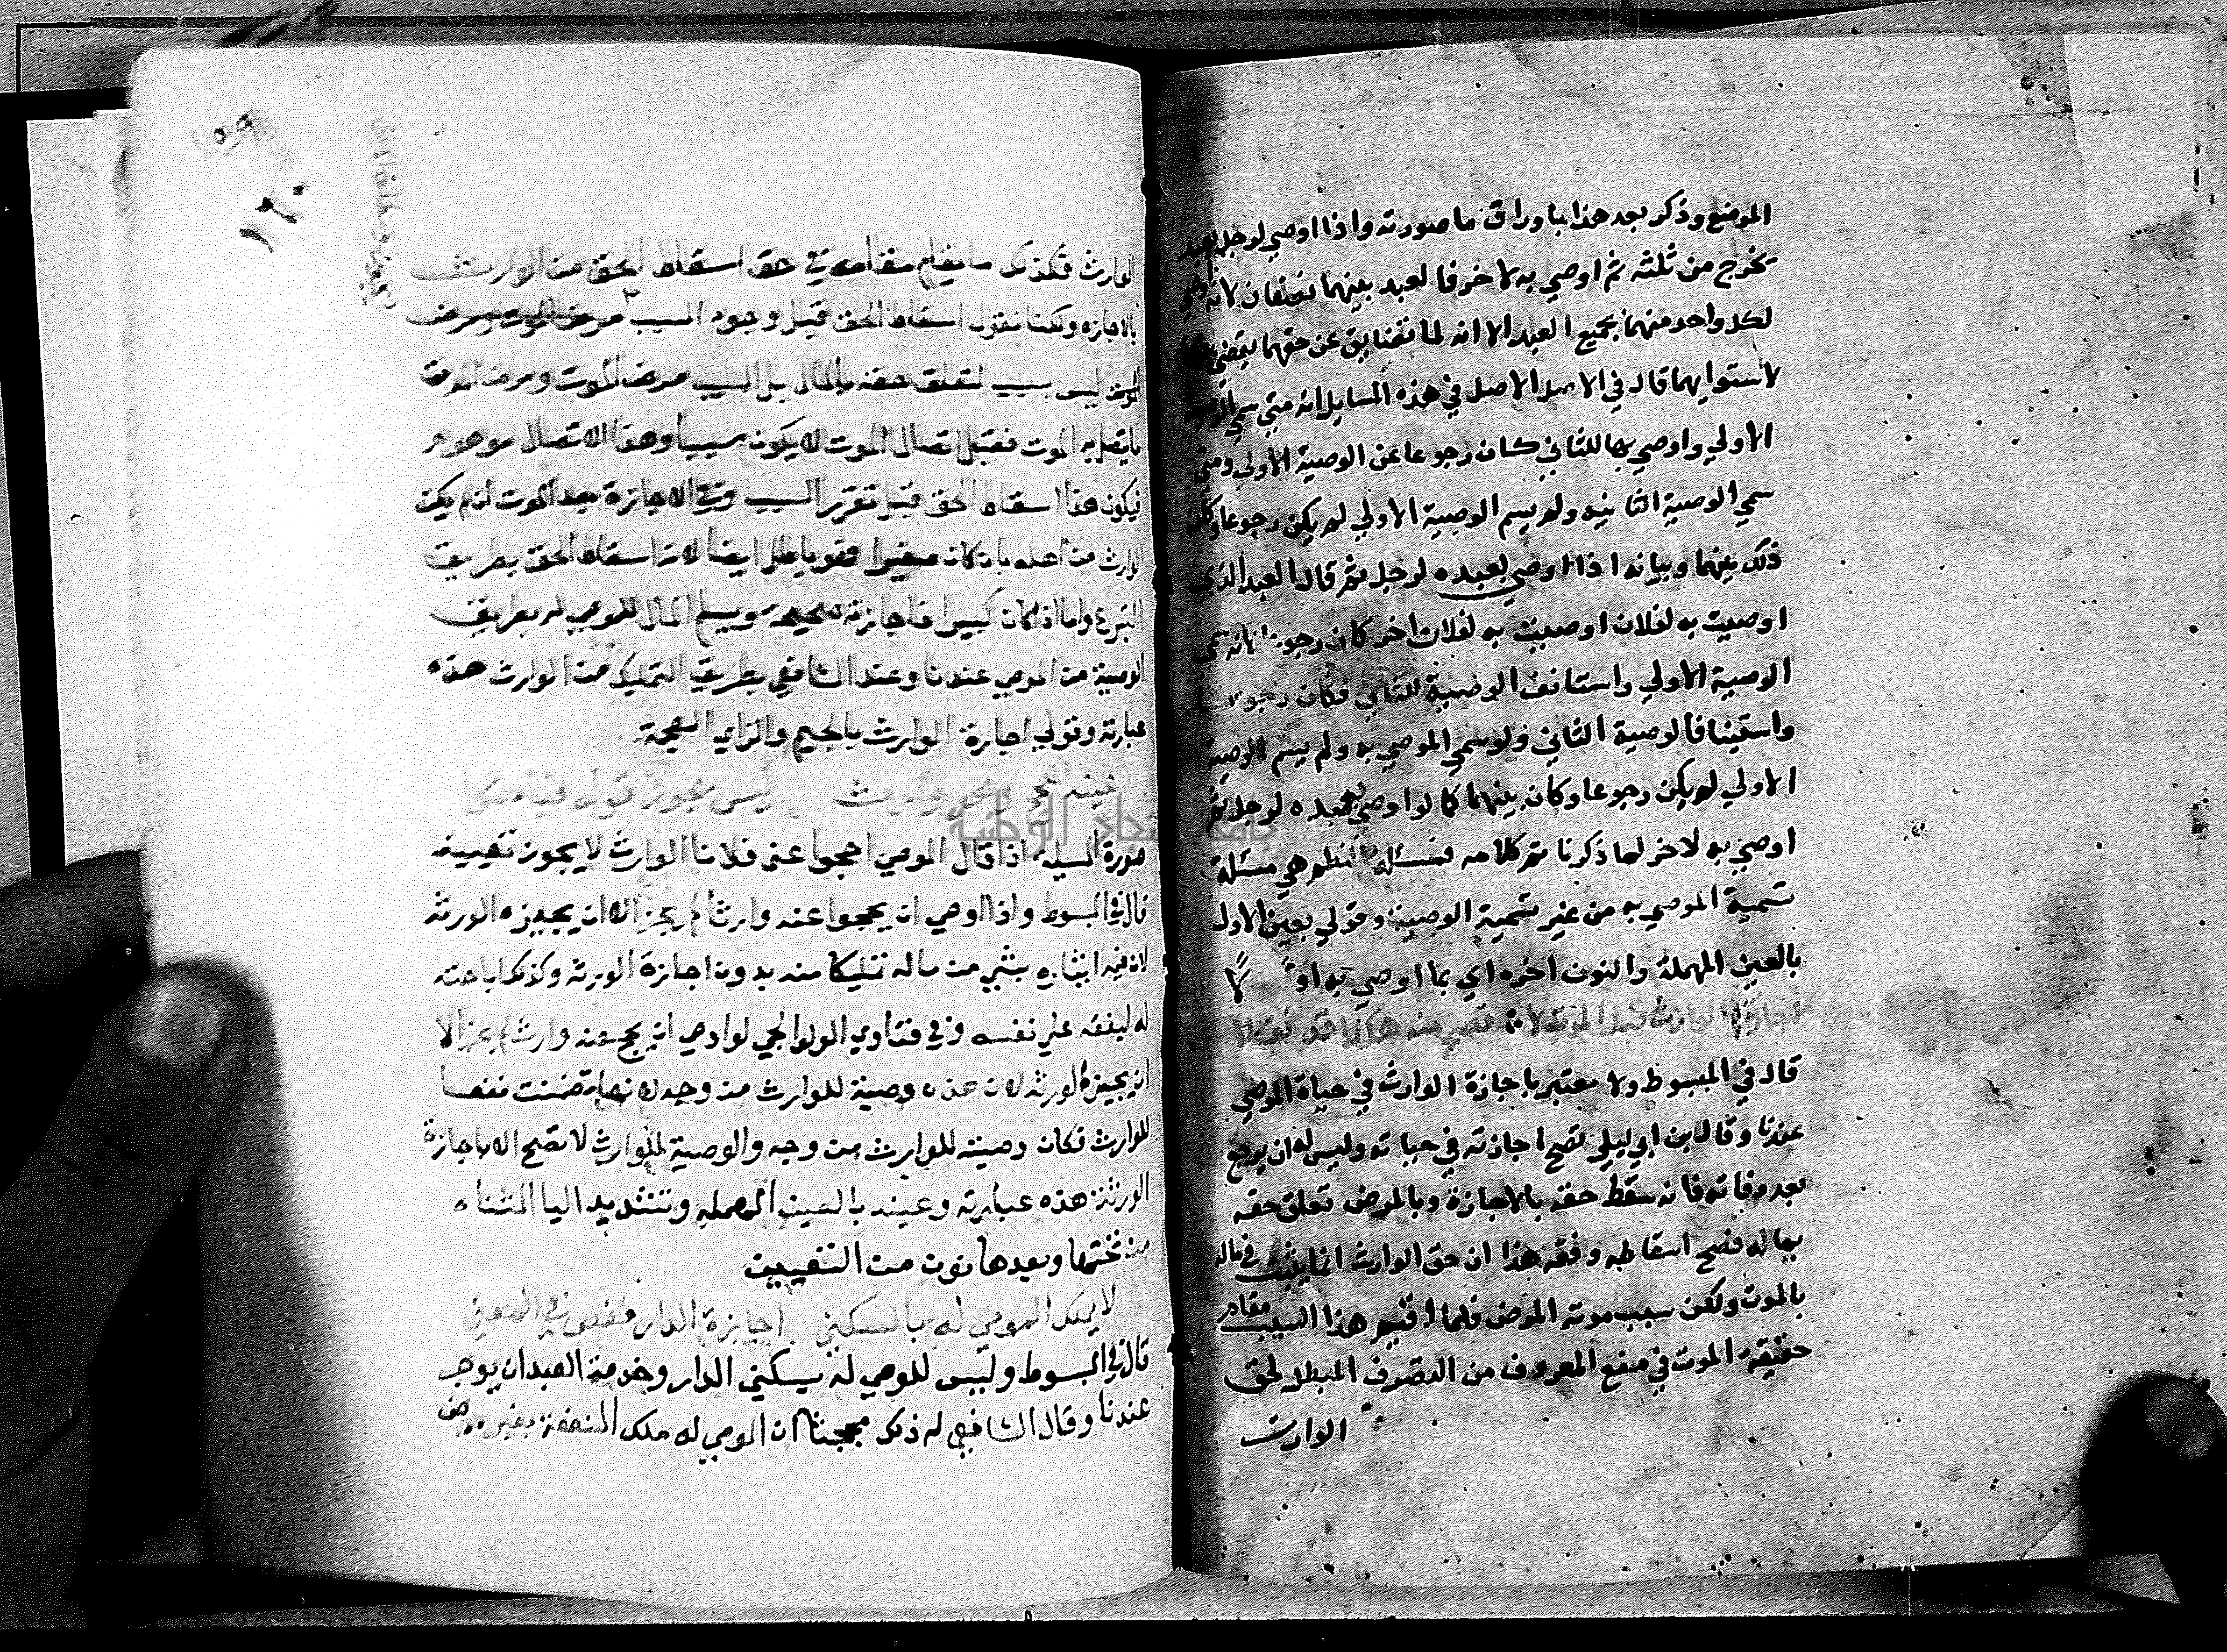 الموضع وذكر بعد هذا باوراق ما صورته واذا اوصي لرجل بعبد
يخرج من ثلثه ثم اوصي به لاخر فالعبد بينهما نصفان لانه
لكل واحد منهما بجميع العبد الا انه لما تضايق عن حقهما
لاستوايهما قال في الاصل الاصل في هذه المسايل انه متي سمي الوصية
الاولي واوصي بها للثاني كان رجوعا عن الوصية الاولي ومتي
سمي الوصية الثانيه ولم يسم الوصية الاولي لم يكن رجوعا وكان
ذلك بينهما وبيانه اذا اوصي بعبده لرجل ثم قال العبد الذي
اوصيت به لفلان اوصيت به لفلان اخر كان رجوعا لانه سمي
الوصية الاولي واستانف الوصية للثاني فكان رجوعا
واستينافا لوصية الثاني ولو سمي الموصي به ولم يسم الوصية
الاولي لم يكن رجوعا وكان بينهما كما لو اوصي بعبده لرجل ثم
اوصي به لاخر لما ذكرنا تم كلامه فمسئلة النظم هي مسئلة
تسمية الموصي به من غير تسمية الوصية وقولي بعين الاول
بالعين المهملة والنون اخره اي بما اوصي به اولا
اجازة الوارث قبل الموت لا تصح منه هكذا قد نقلا
قال في المبسوط ولا معتبر باجازة الوارث في حياة الموصي
عندنا وقال ابن ابي ليلي تصح اجازته في حياته وليس له ان يرجع
بعد وفاته فانه سقط حقه بالاجازة وبالمرض تعلق حقه
بماله فصح اسقاطه وفقه هذا ان حق الوارث انما يثبت في ماله
بالموت ولكن سبب موته المرض فلما اقيم هذا السبب مقام
حقيقة الموت في منع المعروف من التصرف المبطل لحق
الوارث
١٥٩
١٦٠
الوارث فكذلك ما يقام مقامه في حق اسقاط الحق من الوارث
بالاجازه ولكنا نقول اسقاط الحق قبل وجود السبب
ليس بسبب لتعلق حقه بالمال بل السبب مرض الموت ومرض الموت
ما يتصل به الموت فقبل اتصال الموت لا يكون سببا وهذا الاتصال موهوم
فيكون هذا اسقاط الحق قبل تقرر السبب وفي الاجازة بعد الموت ان لم يكن
الوارث من اهله بان كان صغيرا فهو باطل ايضا لان اسقاط الحق بطريق
التبرع واما اذا كان كبيرا فاجازته صحيحة ويسلم المال للموصي له بطريق
الوصية من الموصي عندنا وعند الشافعي بطريق التمليك من الوارث هذه
عبارته وقولي اجازة الوارث بالجيم والزاي المعجمة
صورة المسيلة اذا قال الموصي احجوا عني فلانا الوارث لا يجوز تعيينه
قال في المبسوط واذا اوصي ان يحجوا عنه وارثا لم يجز الا ان يجيزه الورثة
لان فيه ايثاره بشي من ماله تمليكا منه بدون اجازة الورثة وكذلك اباحته
له لينفقه علي نفسه وفي فتاوي الولوالجي لو اوصي ان يحج عنه وارث لم يجز الا
ان يجيزه الورثة لان هذه وصية للوارث من وجه لانها تضمنت نفعا
للوارث فكان وصية للوارث من وجه والوصية للوارث لا تصح الا باجازة
الورثة هذه عبارته وعينه بالعين المهملة وتشديد اليا المثناه
من تحتها وبعدها نون من التعيين
لا يملك الموصي له بالسكني اجازة الدار فقص في المعني
قال في المبسوط وليس للموصي له بسكني الدار وخدمة العبد ان يوجر
عندنا وقال الشافعي له ذلك محتجا ان الموصي له ملك المنفعة بغير عوض